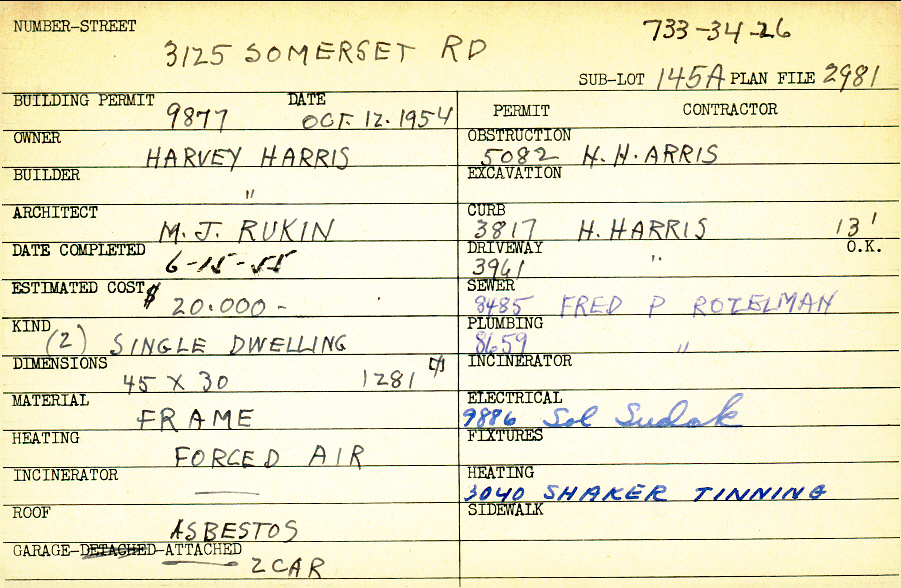 NUMBER-STREET
733-34-26
3125 SOMERSET RD
SUB-LOT 145A PLAN FILE 2981
BUILDING PERMIT 9877 DATE OCT. 12. 1954
OWNER HARVEY HARRIS
BUILDER "
ARCHITECT M. J. RUKIN
DATE COMPLETED 6-15-55
ESTIMATED COST $ 20.000-
KIND (2) SINGLE DWELLING
DIMENSIONS 45 X 30 1281
MATERIAL FRAME
HEATING FORCED AIR
INCINERATOR —
ROOF ASBESTOS
GARAGE-DETACHED-ATTACHED 2 CAR
PERMIT CONTRACTOR
OBSTRUCTION 5082 H. H. ARRIS
EXCAVATION
CURB 3817 H. HARRIS 13'
DRIVEWAY 3961 " O.K.
SEWER 8485 FRED P ROTELMAN
PLUMBING 8659 "
INCINERATOR
ELECTRICAL 9886 Sol Sudak
FIXTURES
HEATING 3040 SHAKER TINNING
SIDEWALK